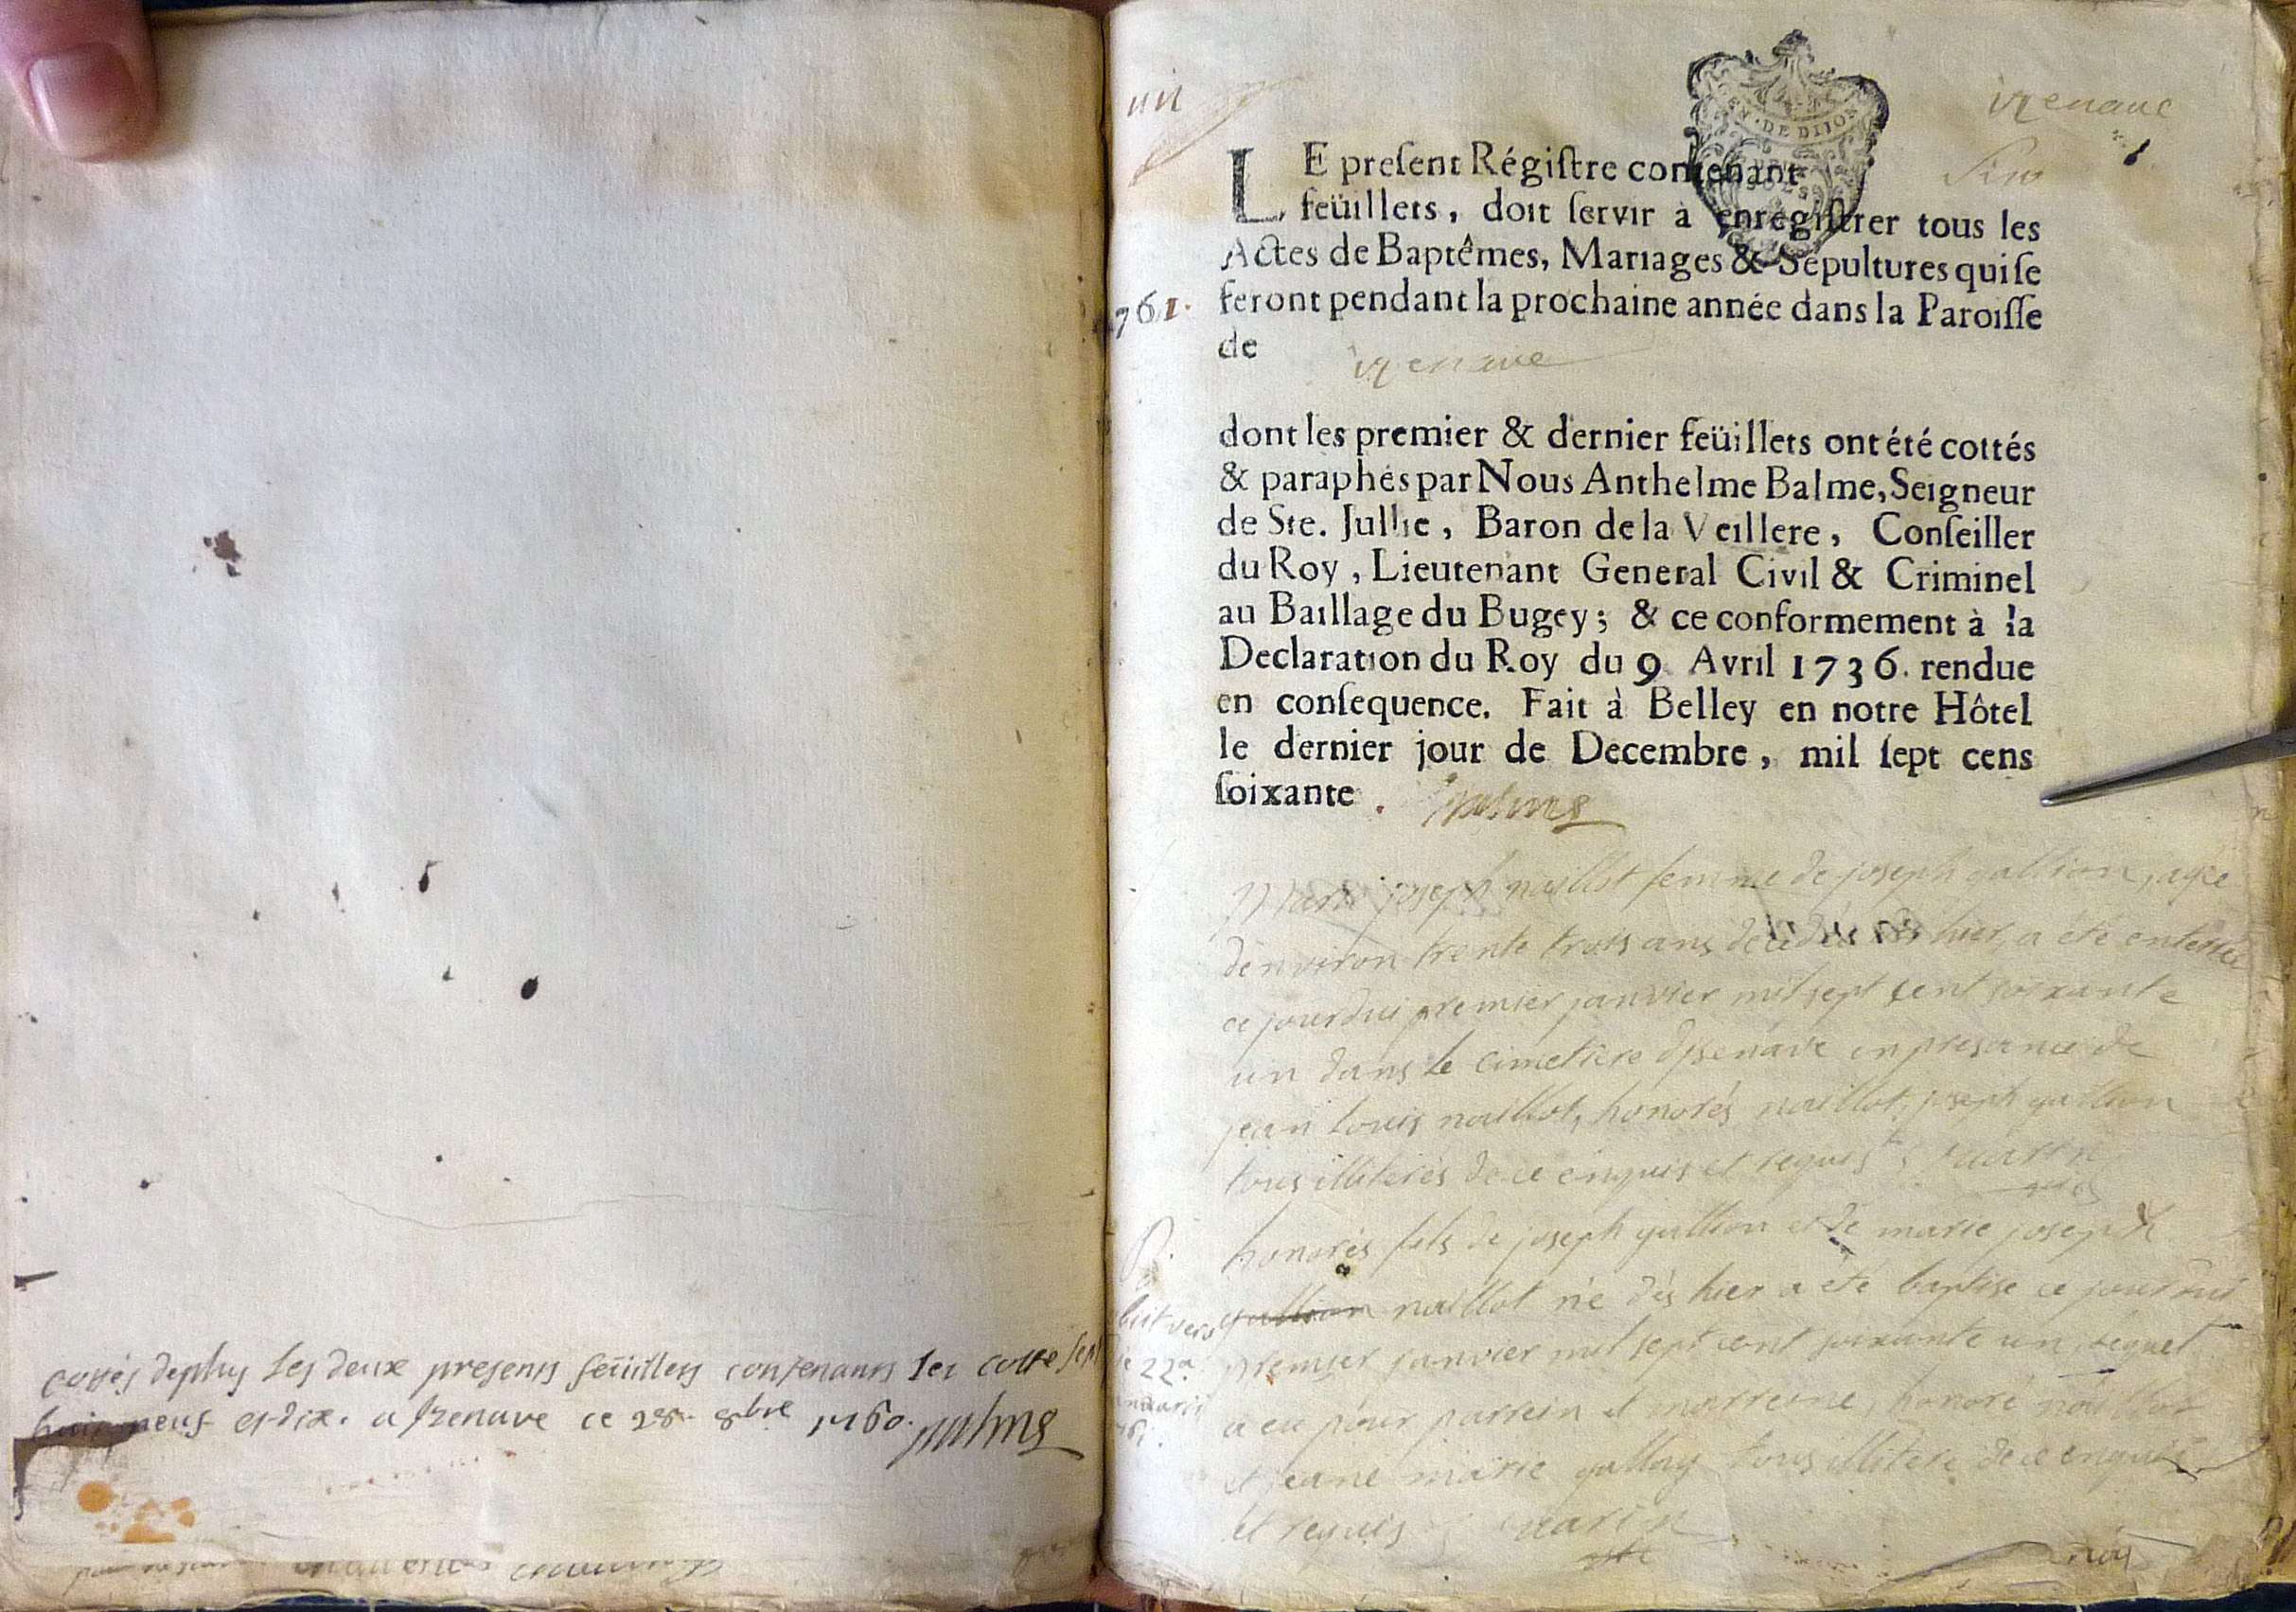 cottés deplus les deux presents feüillets contenants les cotte sept
huit neuf et dix. a izenave ce 28. 8bre 1760. Balme
un
izenave
Six
N. DE DIJON
LE preſent Régiſtre contenant
feüillets, doit ſervir à enregiſtrer tous les
Actes de Baptêmes, Mariages & Sépultures qui ſe
1761.
feront pendant la prochaine année dans la Paroiſſe
de izenave
dont les premier & dernier feüillets ont été cottés
& paraphés par Nous Anthelme Balme, Seigneur
de Ste. Jullie, Baron de la Veillere, Conſeiller
du Roy, Lieutenant General Civil & Criminel
au Baillage du Bugey; & ce conformement à la
Declaration du Roy du 9 Avril 1736. rendue
en conſequence. Fait à Belley en notre Hôtel
le dernier jour de Decembre, mil ſept cens
ſoixante. Balme
Marie joseph naillot femme de joseph gallion, agée
denviron trente trois ans decedée hier, a été enterrée
ce jourdui premier janvier mil sept cent soixante
un dans le cimetiere disenave en presance de
jean louis naillot, honorés naillot, joseph gallion
tous illiterés de ce enquis et requis
honorés fils de joseph gallion et de marie joseph
gallion naillot né dès hier a été baptisé ce jourdui
premier janvier mil sept cent soixante un, lequel
a eu pour parrein et marreine, honoré naillot
et jeane marie gallay tous illiterés de ce enquis
et requis
B.
obiit vero
22a
januarii